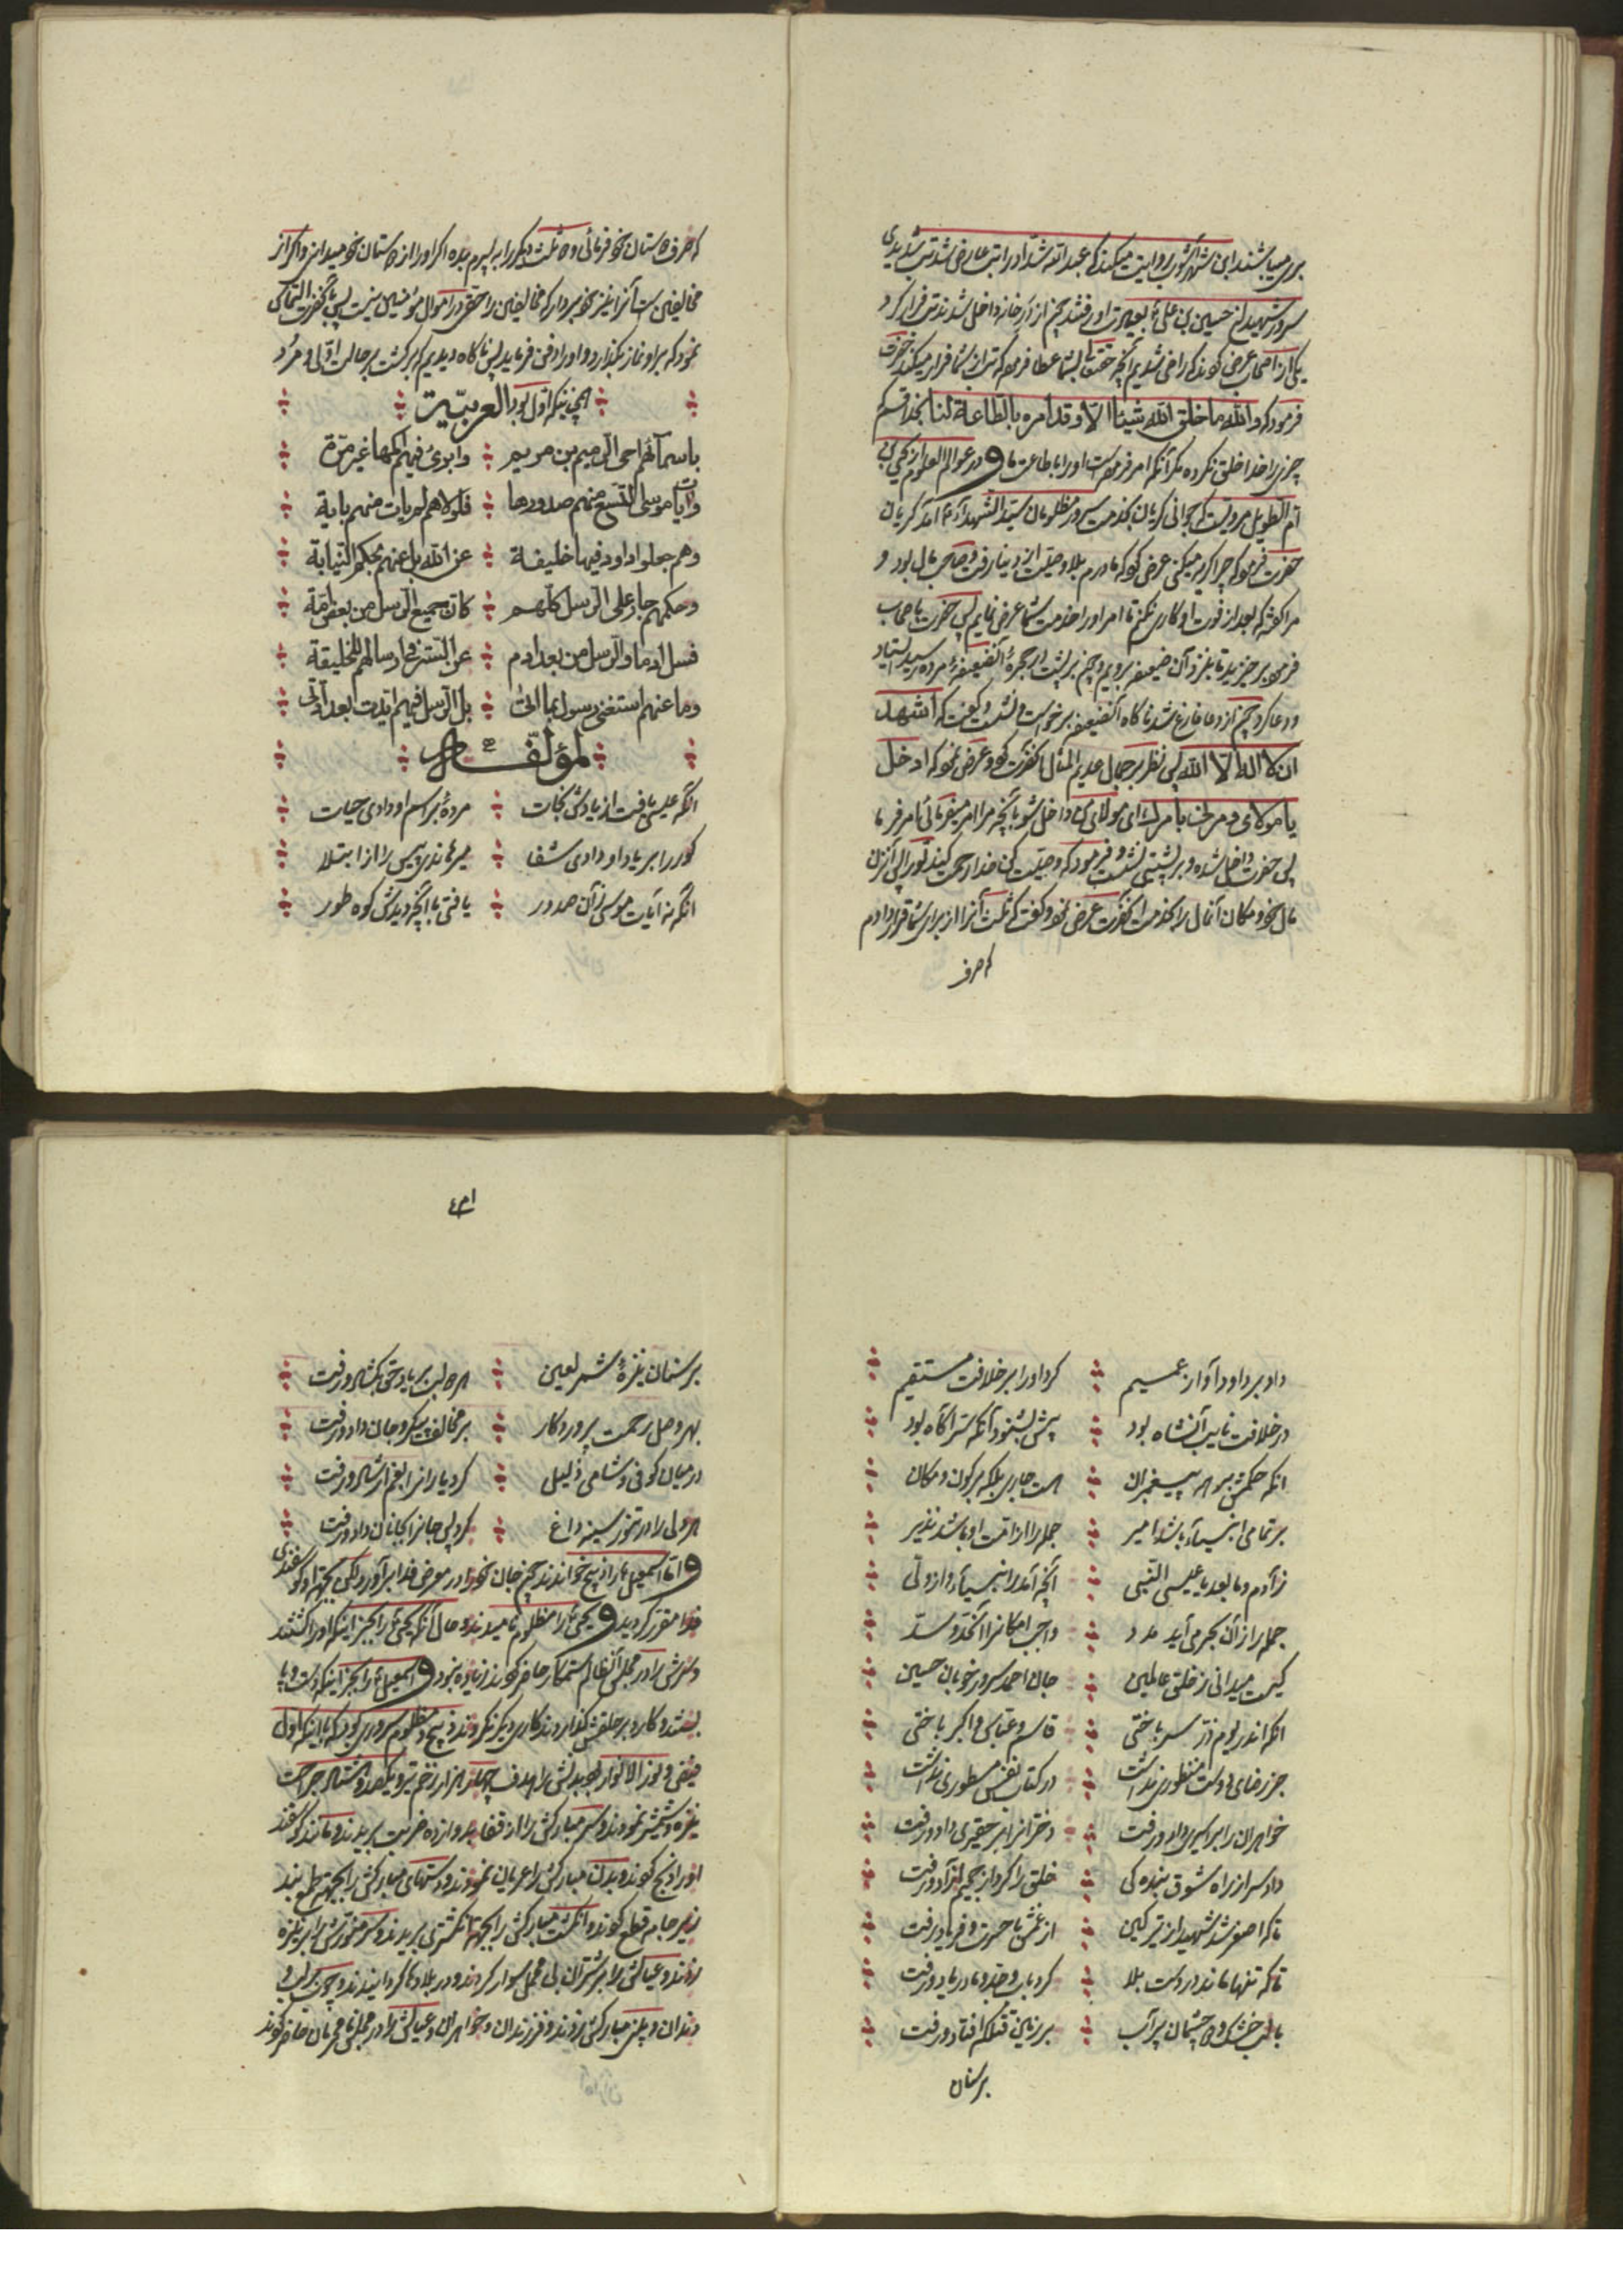 بردمیباشند ابن شهرآشوب روایت میکند که عبدالله شداد را تب عارض شد تب شدیدی
سرور شهیدان حسین بن علی ع بعیادت او رفتند چون از در خانه داخل شدند تب فرار کرد
یکی از اصحاب عرض کردند که راضی شدیم آنچه حقتعالی بشما عطا فرموده که تب از شما فرار میکند حضرت
فرمود که والله ما خلق الله شیئا الا و قد امره بالطاعة لنا بخدا قسم که
چیزی را خدا خلق نکرده مگر آنکه امر فرموده است او را باطاعت ما و در عوالم العلوم از یحیی بن
ام الطویل مرویست که جوانی گریان بخدمت سرور مظلومان سید الشهداء ع آمد گریان
حضرت فرمود که چرا گریه میکنی عرض کرد که مادرم بلا وصیت از دنیا رفت و صاحب مال بود و
مرا گفته که بعد از فوت او کاری نکنم تا امر او را خدمت شما عرض نمایم پس حضرت باصحاب
فرمود برخیزید تا بنزد آن ضعیفه برویم و چون بر پشت در حجره آنضعیفه مرده رسید ایستاد
و دعا کرد چون از دعا فارغ شد ناگاه آنضعیفه برخواست و نشست و گفت که اشهد
ان لا اله الا الله پس نظر بر جمال عدیم المثال آنحضرت کرد و عرض نمود که ادخل
یا مولای و مرنی بامرک ای مولای من داخل شو بآنچه مرا امر میفرمائی امر فرما
پس حضرت داخل شده و بر پشتی نشست و فرمود که وصیت کن خدا رحمت کند تو را پس آنزن
مال خود و مکان آنمال را بخدمت آنحضرت عرض نمود و گفت که ثلث آنرا از برای شما قرار دادم
که صرف
که صرف دوستان خود فرمائی و دو ثلث دیگر را به پسرم بده اگر او را از دوستان خود میدانی و اگر از
مخالفین است آنرا نیز خود بردار که مخالفین را حقی در اموال مؤمنین نیست پس بآنحضرت التماس
نمود که بر او نماز بگذارد و او را دفن فرماید پس ناگاه دیدیم که برگشت بر حالت اولی و مرد
همچنانکه اول بود العربیة
باسمائهم احی الرمیم بن مریم وابرئ فیهم اکمها غیر مرة
وایات موسی التسع منهم صدورها فلولاهم لم یات منهم بایة
وهم جعلوا داود فیها خلیفة عن الله بل عنهم بحکم النیابة
وحکمهم جار علی الرسل کلهم کان جمیع الرسل من بعض امة
فسل ادما والرسل من بعد ادم عن السر فی ارسالهم للخلیقة
وما عنهم استغنی رسول بما اتی بل الرسل فیهم ایدت بعد آتی
لمؤلفه
آنکه عیسی یافت از یادش نجات مرده بر اسم او دادی حیات
کور را بر یاد او دادی شفا میرهاندی پیس را از ابتلا
آنکه نه آیات موسی زآن صدور یافتی با آنچه دیدش کوه طور
داد بر داود آواز عمیم کرد او را بر خلافت مستقیم
در خلافت نایب آنشاه بود پیش بشنود آنکه سر آگاه بود
آنکه حکمش بر همه پیغمبران هست جاری بلکه بر کون و مکان
بر تمامی انبیاء باشد امیر جمله را از امت او باشد نذیر
ز آدم و ما بعد یا عیسی النبی آنچه آمد زانبیاء و از ولی
جمله را از آن بحر می آید مدد واجب امکانرا
کیست میدانی ز خلق عالمین جان احمد سرور خوبان حسین
آنکه اندر یوم ذر سر باختی قاسم و عباس و اکبر باختی
جز رضای دوست منظوری نداشت در کتاب نفس مسطوری نداشت
خواهران را بر اسیری داد و رفت دختران را بر حقیری داد و رفت
داد سر از راه شوق بندگی خلق را کرد از جحیم آزاد و رفت
تا که اصغر شد شهید از تیر کین از غمش با حسرت و فریاد رفت
تا که تنها ماند در دشت بلا کرد باب و جد و مادر یاد و رفت
با لب خشک و دو چشمان پر آب بر زمین قتلگه افتاد و رفت
بر سنان
٤٣١
بر سنان نیزهٔ شمر لعین هر دو لب بر یاد حق بگشاد و رفت
بهر وصل رحمت پروردگار بر مخالف پیکر و جان داد و رفت
در میان کوفی و شامی ذلیل کرد یاران را بغم ارشاد و رفت
هر ولی را در تنور سینه داغ کرد پس جان را بجانان داد و رفت
و اما اسمعیل ع را ذبیح خواندند چون جان خود را در معرض فدا برآورد لکن بجهة او گوسفندی
فدا مقرر گردید و یحیی ع را مظلوم نامیدند و حال آنکه یحیی ع را بجز اینکه او را کشتند
و سرش را در مجلس آنظالم ستمکار حاضر کردند زیاده نبود و اسمعیل ع را بجز اینکه دست و پا
بستند و کارد بر حلقش گذاردند کاری دیگر نکردند ذبیح و مظلوم سروری بود که با اینکه اول
فیض و نور الانوار بود بدنش را هدف چهار هزار زخم تیر و یکصد و هشتاد جراحت
نیزه و شمشیر نمودند و سر مبارکش را از قفا بدوازده ضربت بریدند و مانند گوسفند
او را ذبح کردند و بدن مبارکش را عریان نمودند و دستهای مبارکش را بجهة طمع بند
زیر جامه قطع کردند و انگشت مبارکش را بجهة انگشتری بریدند و سر منورش را بر نیزه
زدند و عیالش را بر شتران بی محمل سوار کردند و در بلادها گردانیدند و چوب بر لب و
دندان و بدن مبارکش زدند و فرزندان و خواهران و عیالش را در مجلس نامحرمان حاضر کردند